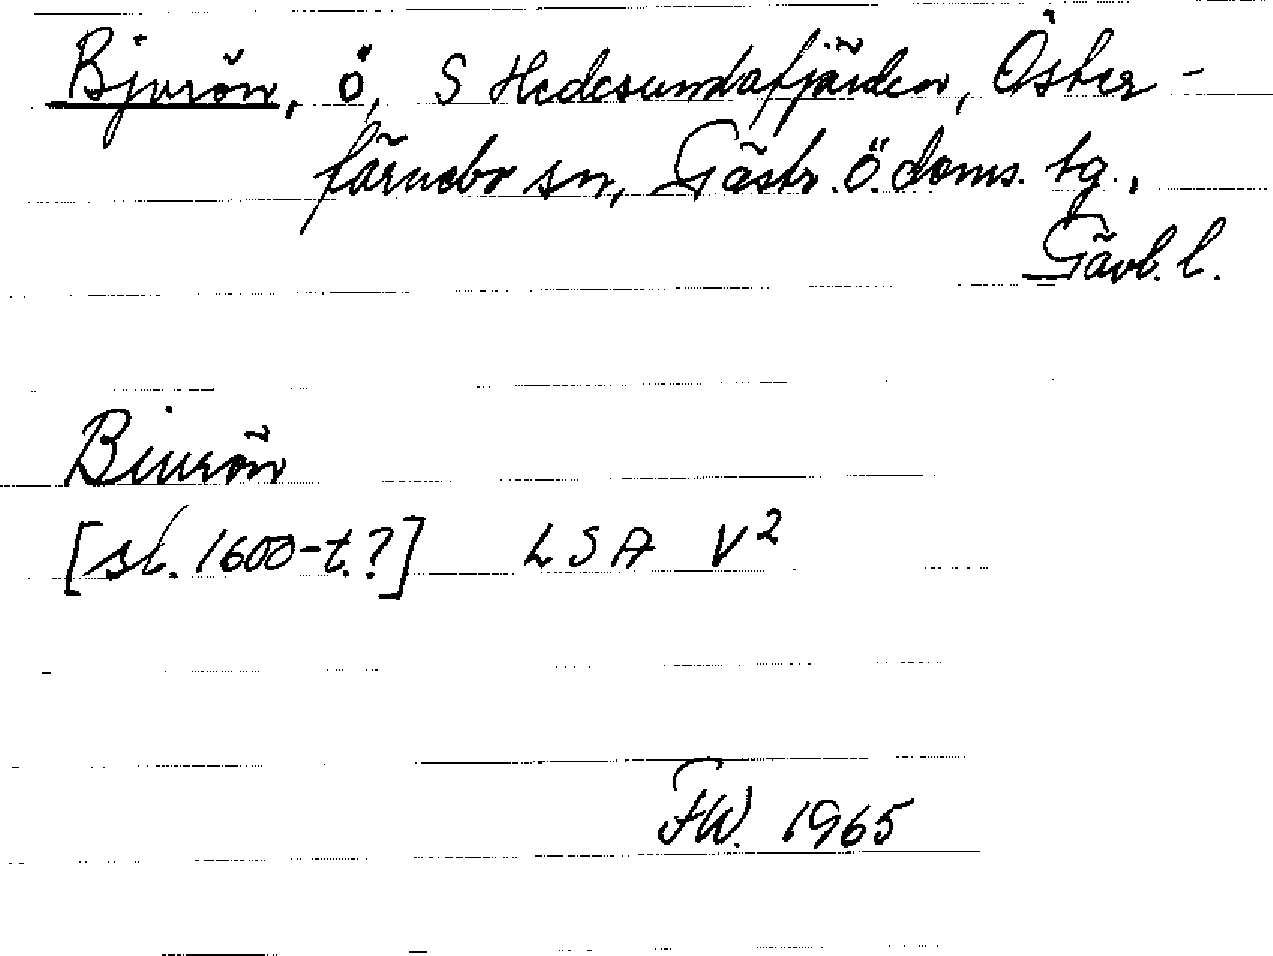 Bjurön, ö, S Hedesundafjärden, Öster-
färnebo sn, Gästr. ö. doms. tg.,
Gävl. l.
Biurön
[sl. 1600-t.?] LSA V²
FW. 1965